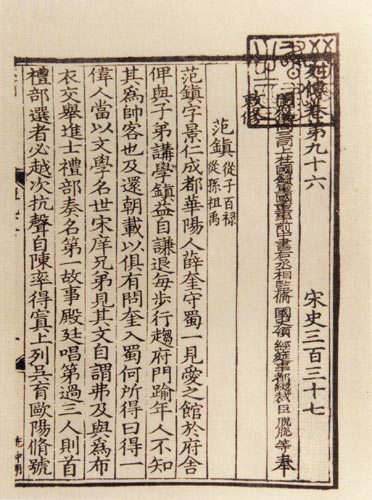 列傳卷第九十六　宋史三百三十七
開府儀同三司上柱國錄軍國重事前中書右丞相監脩　國史領　經筵事都總裁臣　脫脫　等奉
敕修
范鎮從子百祿　從孫祖禹
范鎮字景仁成都華陽人薛奎守蜀一見愛之館於府舍
俾與子弟講學鎮益自謙退每步行趨府門踰年人不知
其為帥客也及還朝載以俱有問奎入蜀何所得曰得一
偉人當以文學名世宋庠兄弟見其文自謂弗及與為布
衣交舉進士禮部奏名第一故事殿廷唱第過三人則首
禮部選者必越次抗聲自陳率得寘上列吳育歐陽脩號